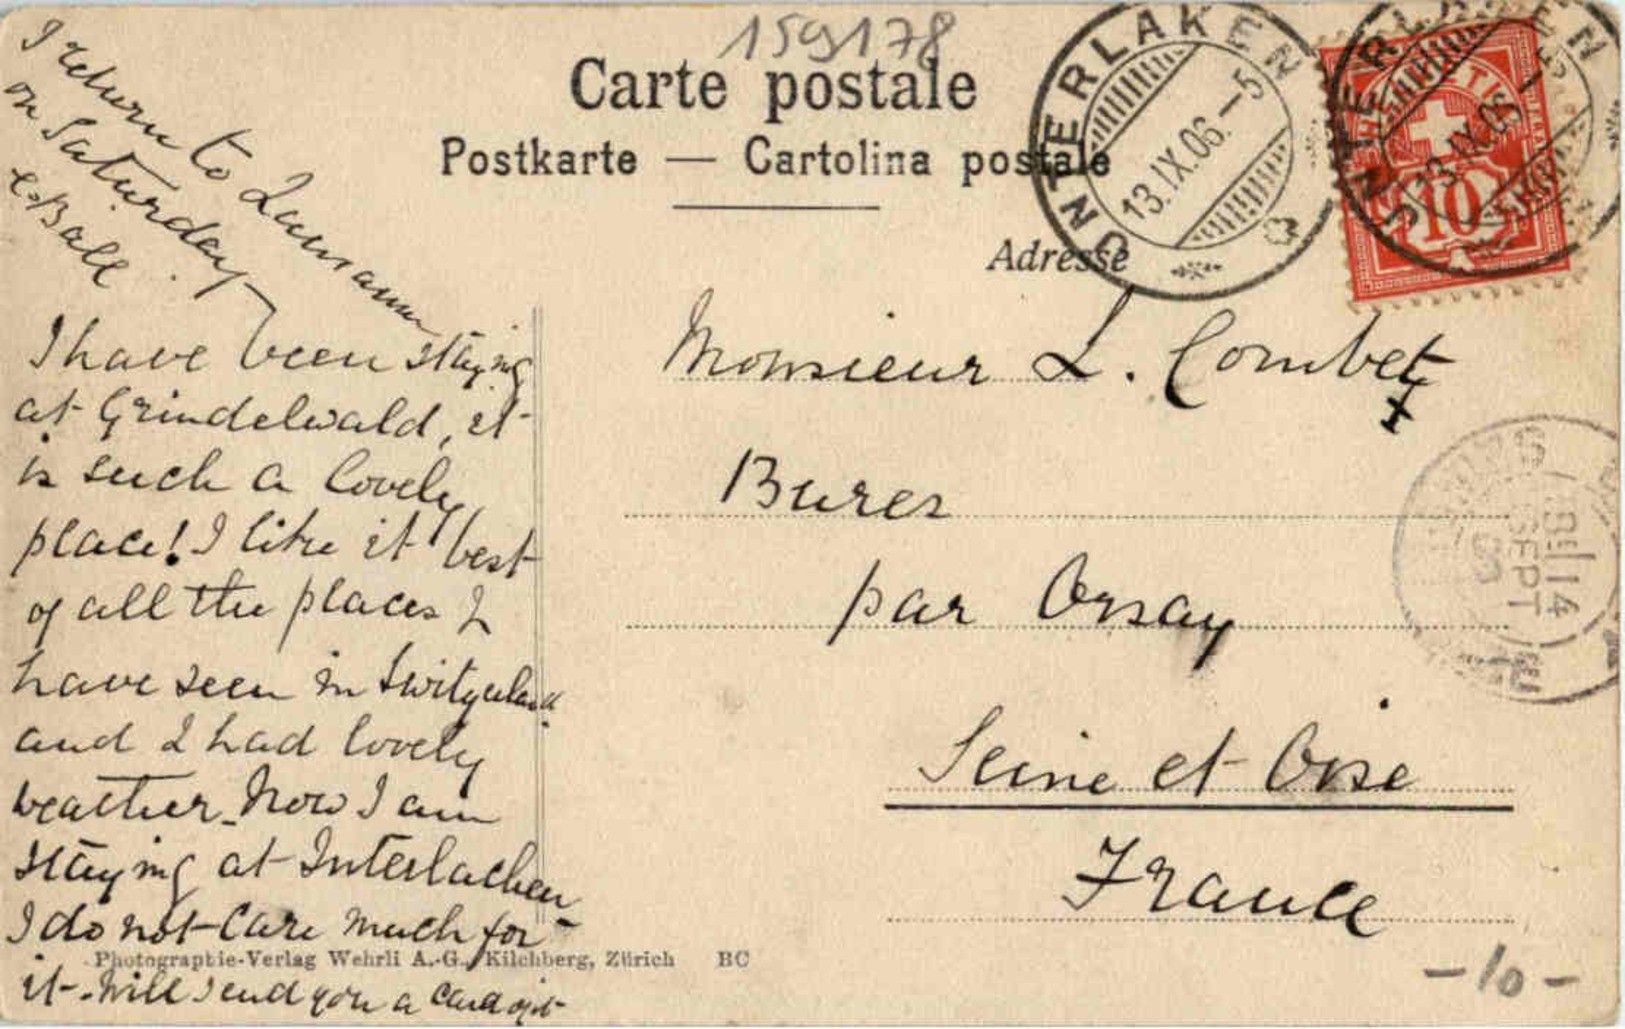 159178
Carte postale
Postkarte — Cartolina postale
Adresse
UNTERLAKEN
13.IX.06.–5
INTERLAKEN
13.IX.06.–5
10
I return to Lausanne
on Saturday
E. Ball.
I have been staying
at Grindelwald, it
is such a lovely
place! I like it best
of all the places I
have seen in Switzerland.
and I had lovely
weather. Now I am
staying at Interlachen
I do not care much for
it. Will send you a card of it
Monsieur L. Combet
Bures
par Orsay
Seine et Oise
France
14
SEPT
06
Photographie-Verlag Wehrli A.-G., Kilchberg, Zürich BC
-10-